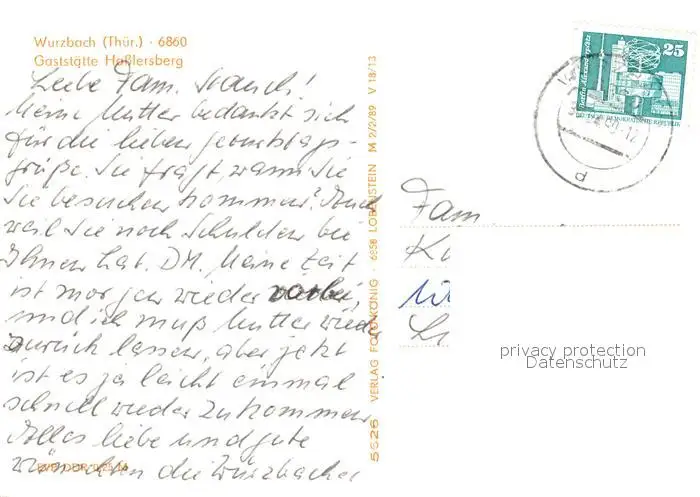 Wurzbach (Thür.) · 6860
Gaststätte Haßlersberg
Liebe Fam. Strauch!
Meine Mutter bedankt sich
für die lieben Geburtstags-
grüße. Sie fragt wann Sie
Sie besuchen kommen? Auch
weil Sie noch Schulden bei
Ihnen hat. DM. Meine Zeit
ist morgen wieder vorbei,
und ich muß Mutter wieder
zurück lassen, aber jetzt
ist es ja leicht einmal
schnell wieder zu kommen
Alles liebe und gute
wünschen die Wurzbacher
5626 VERLAG FOTO-KÖNIG · 6858 LOBENSTEIN M 2/2/89 V 18/13
25
Berlin, Alexanderplatz
DEUTSCHE DEMOKRATISCHE REPUBLIK
Fam.
privacy protection
Datenschutz